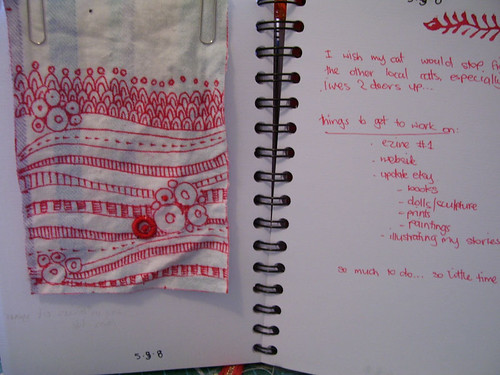 5.9.8
I wish my cat would stop
the other local cats, especially
lives 2 doors up...
things to get to work on:
· ezine #1
· website
· update etsy
- books
- dolls/sculpture
- prints
- paintings
· illustrating my stories
so much to do... so little time
5.9.8